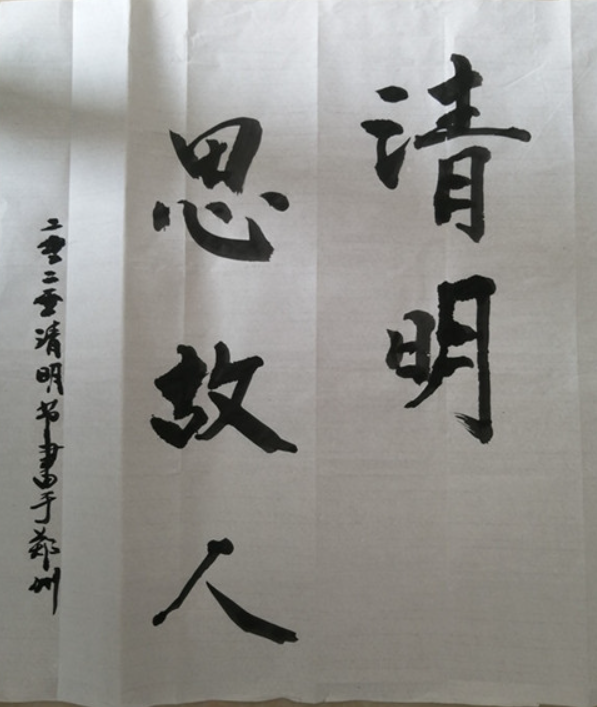 清明
思故人
二零二零清明节書于郑州